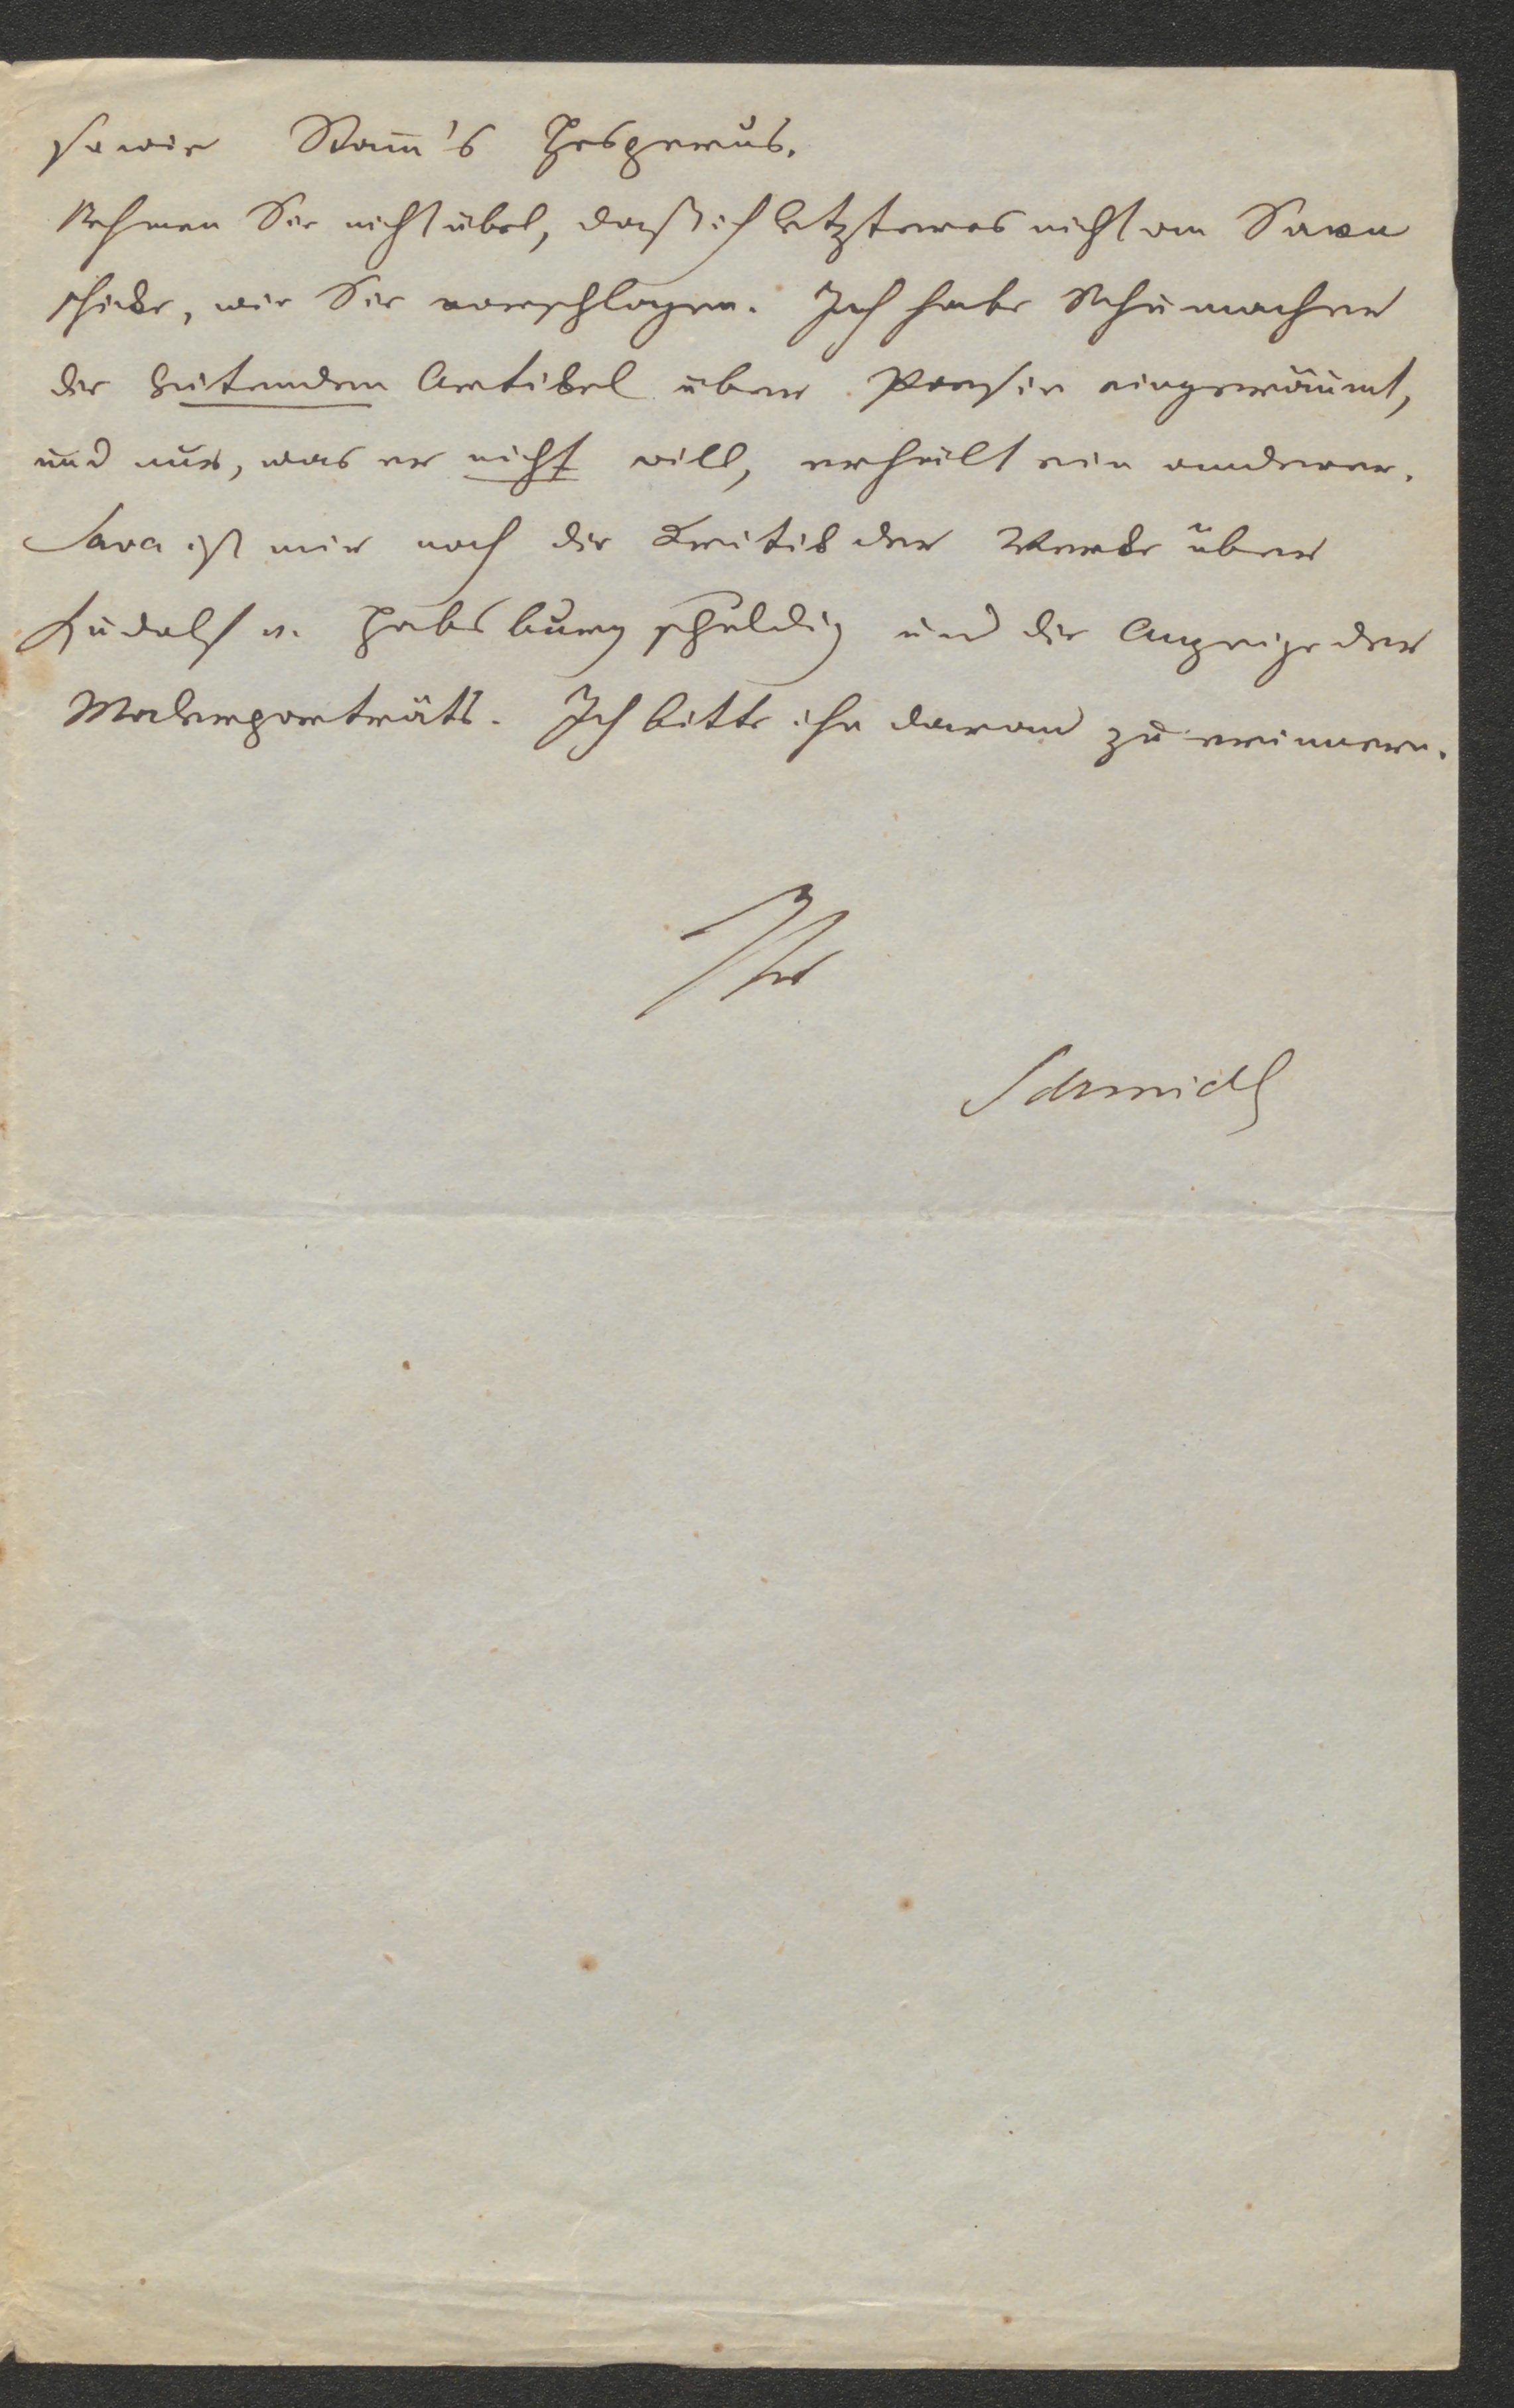 sowie Stamm's Hesperus.
Nehmen Sie nicht übel, daß ich letzteres nicht an Sava
schicke, wie Sie vorschlagen. Ich habe Schumacher
die leitenden Artikel über Poesie eingeräumt,
und nur, was er nicht will, erhält ein anderer.
Sava ist mir noch die Kritik der Werke über
Rudolf v. Habsburg schuldig und die Anzeige der
Malerporträts. Ich bitte ihn daran zu erinnern.
Ihr
Schmidl